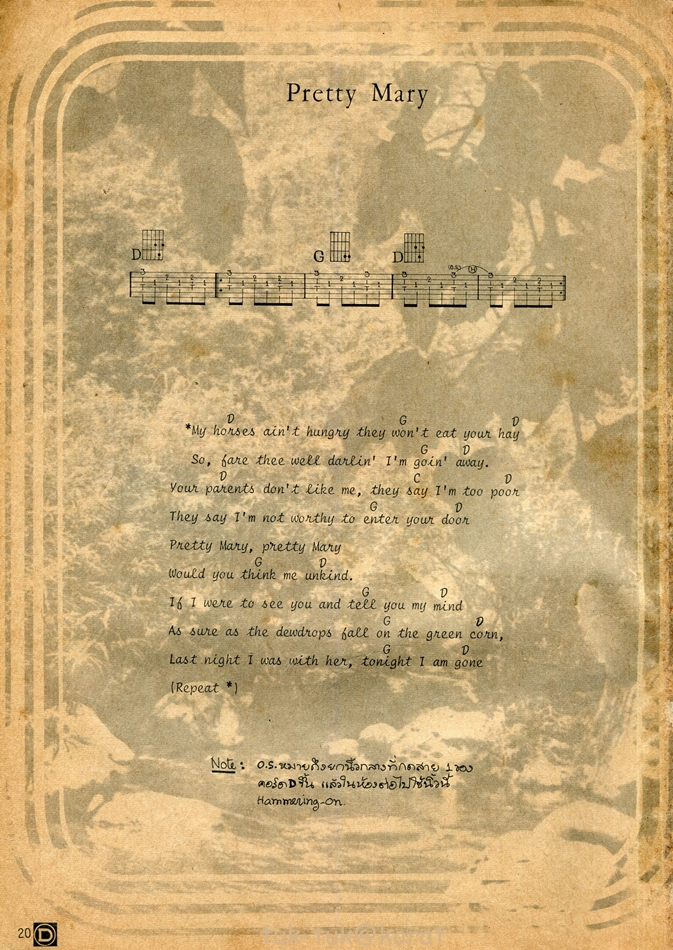 Pretty Mary
D G D
D G D
*My horses ain't hungry they won't eat your hay
G D
So, fare thee well darlin' I'm goin' away.
D C D
Your parents don't like me, they say I'm too poor
G D
They say I'm not worthy to enter your door
Pretty Mary, pretty Mary
G D
Would you think me unkind.
G D
If I were to see you and tell you my mind
G D
As sure as the dewdrops fall on the green corn,
G D
Last night I was with her, tonight I am gone
(Repeat *)
Note: O.S. หมายถึงยกนิ้วกลางที่กดสาย 1 ของ
คอร์ด D ขึ้น แล้วในห้องต่อไปใช้นิ้วนี้
Hammering-on.
20 D